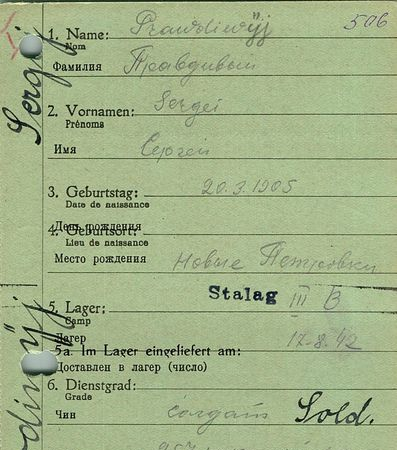 506
1. Name: Prawdiwyj
Nom
Фамилия Правдивый
2. Vornamen: Sergei
Prénoms
Имя Сергей
3. Geburtstag: 20.3.1905
Date de naissance
День рождения
4. Geburtsort:
Lieu de naissance
Место рождения Новые Петровки
5. Lager: Stalag III B
Camp
Лагер 17.8.42
5a. Im Lager eingeliefert am:
Доставлен в лагер (число)
6. Dienstgrad:
Grade
Чин солдат Sold.
Sergej